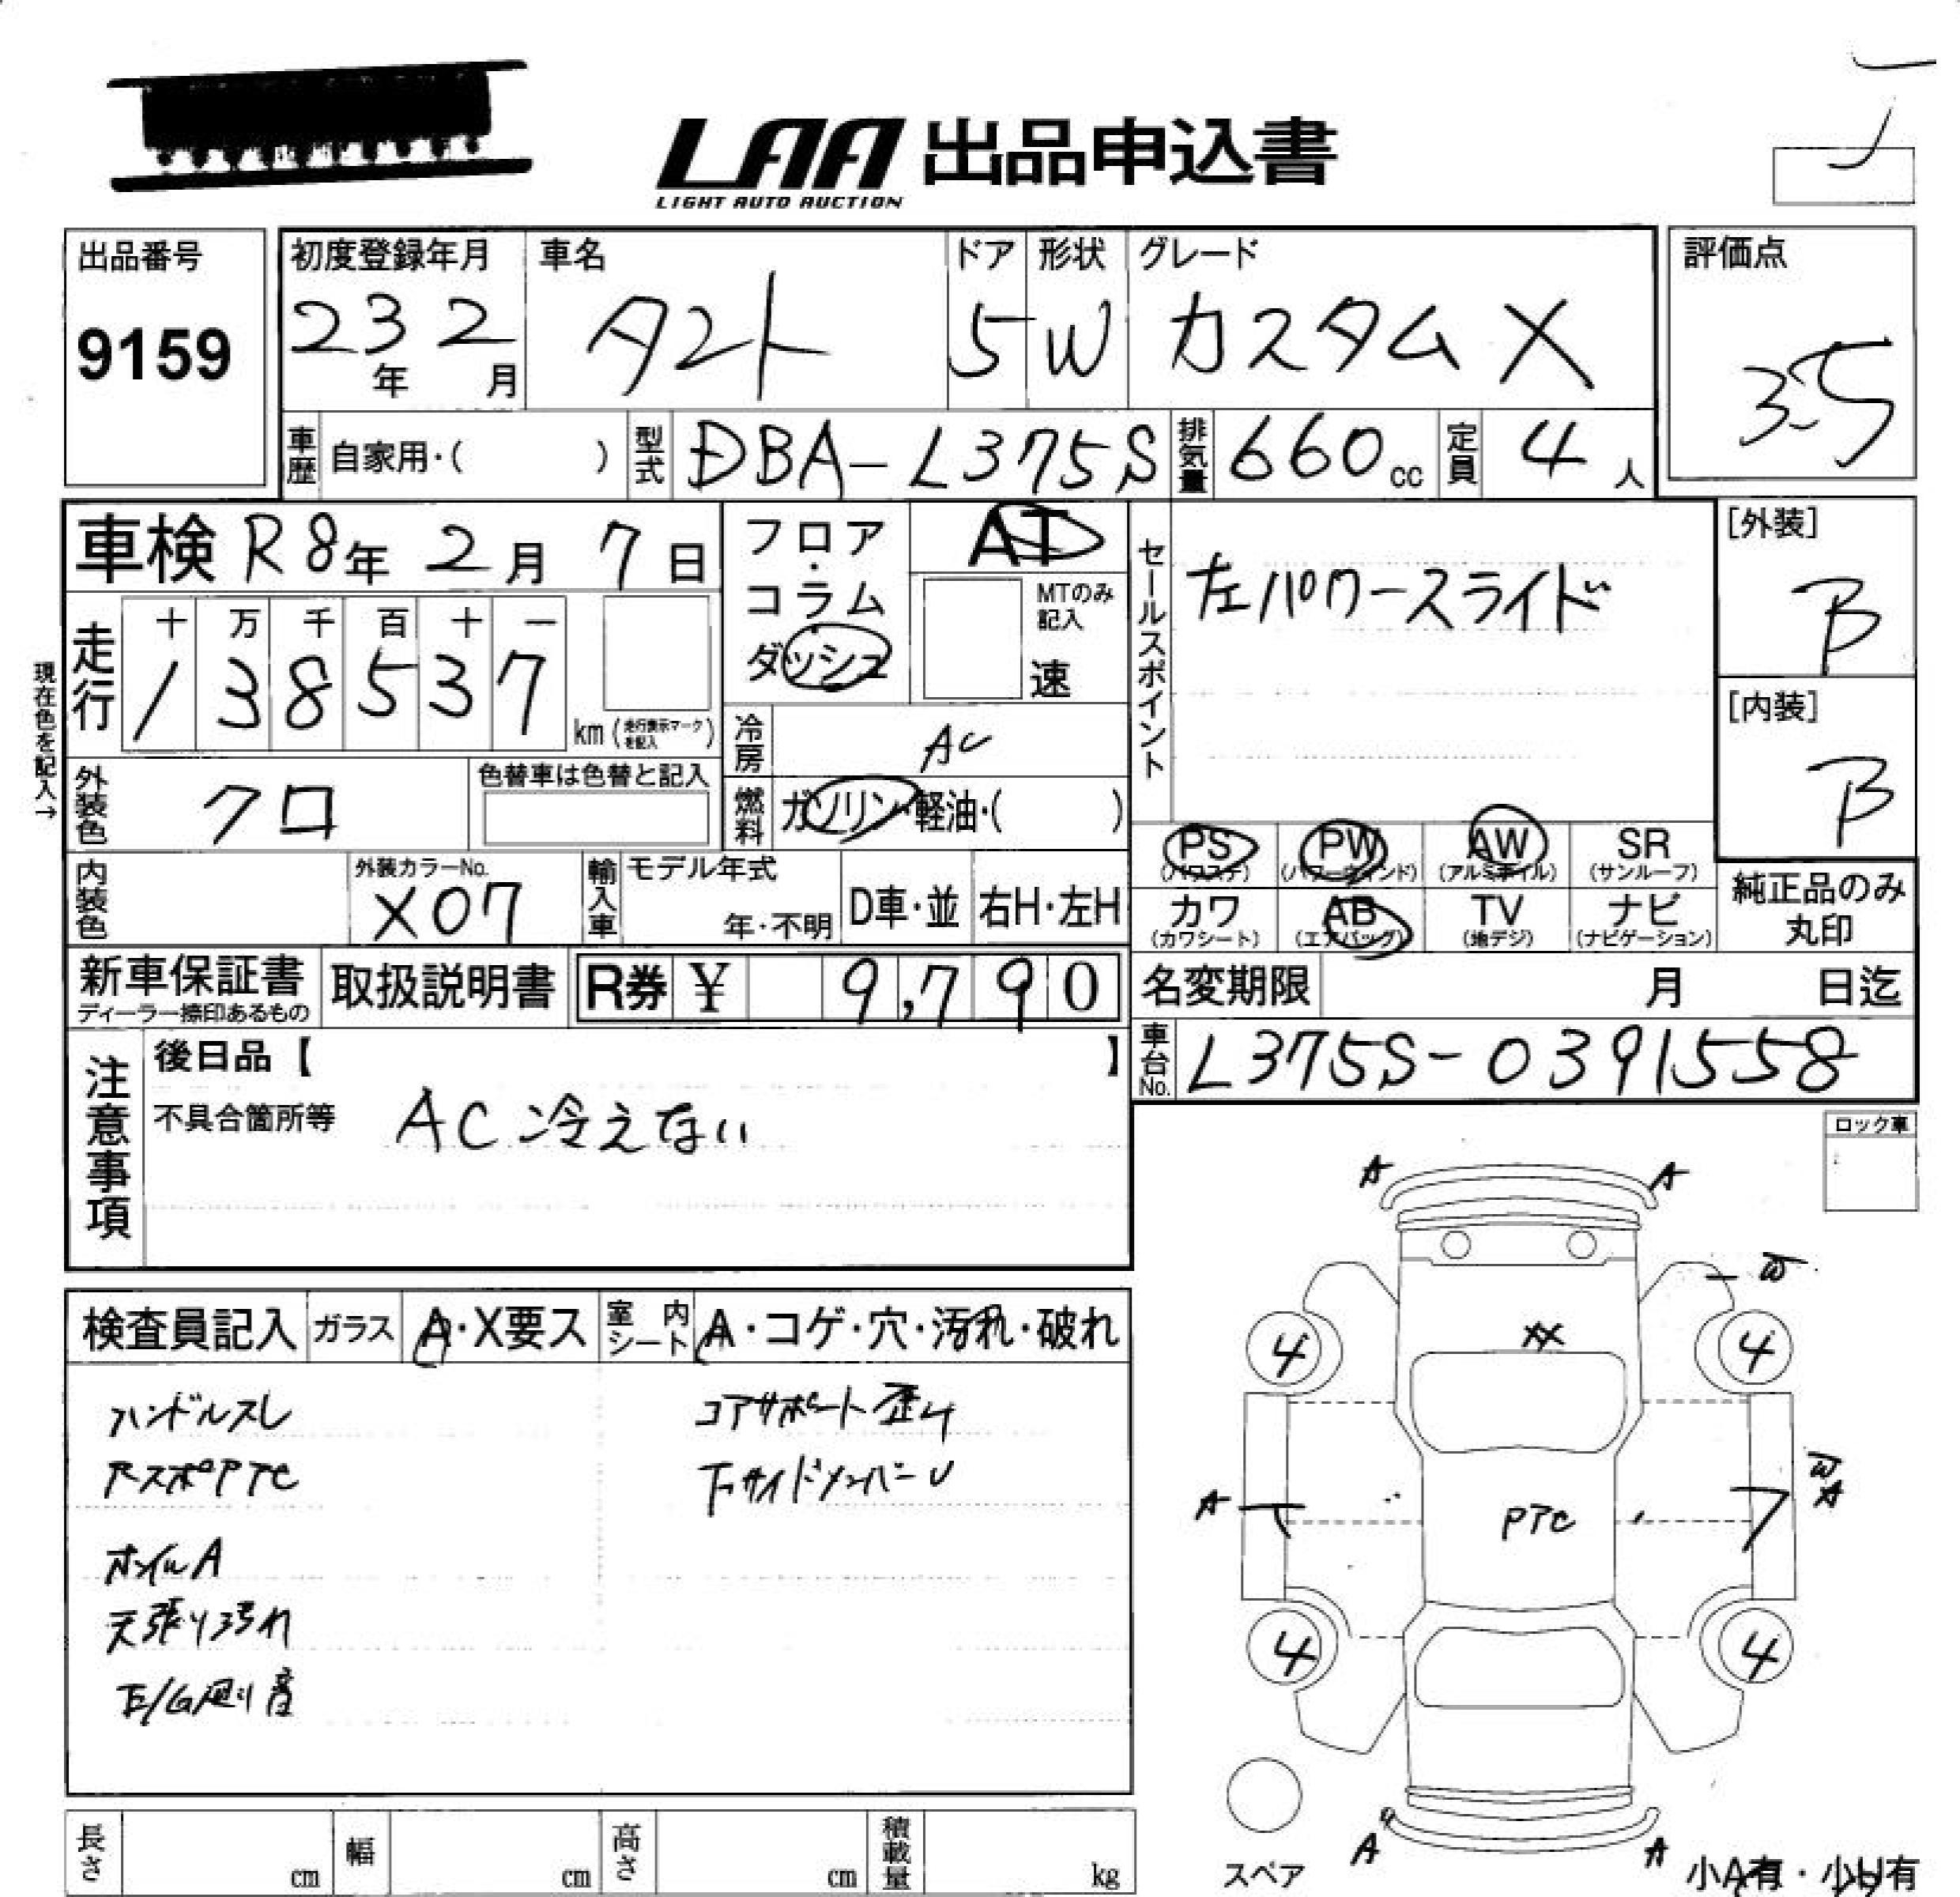 LAA 出品申込書
LIGHT AUTO AUCTION
出品番号
9159
初度登録年月
23年 2月
車名
タント
ドア
5
形状
W
グレード
カスタム X
評価点
3.5
車歴 自家用・( )
型式 DBA-L375S
排気量 660 cc
定員 4 人
車検 R8年 2月 7日
走行 十 万 千 百 十 一
1 3 8 5 3 7
km (走行表示マークを記入)
現在色を記入→
外装色 クロ
色替車は色替と記入
フロア・コラム・ダッシュ
AT
MTのみ記入
速
冷房 AC
燃料 ガソリン・軽油・( )
セールスポイント
左パワースライド
[外装]
B
[内装]
B
内装色
外装カラーNo.
X07
輸入車
モデル年式
年・不明
D車・並
右H・左H
PS (パワステ)
PW (パワーウィンド)
AW (アルミホイル)
SR (サンルーフ)
カワ (カワシート)
AB (エアバッグ)
TV (地デジ)
ナビ (ナビゲーション)
純正品のみ丸印
新車保証書
ディーラー捺印あるもの
取扱説明書
R券 ¥ 9,790
名変期限 月 日迄
車台No. L375S-0391558
注意事項
後日品【 】
不具合箇所等 AC 冷えない
ロック車
検査員記入
ガラス A・X要ス
室内シート A・コゲ・穴・汚れ・破れ
ハンドルスレ
コアサポート歪ム
ホイルA
天張り汚れ
A A
W
XX
4 4
A
PTC
W
A
4 4
A A
スペア
小A有・小U有
長さ cm
幅 cm
高さ cm
積載量 kg